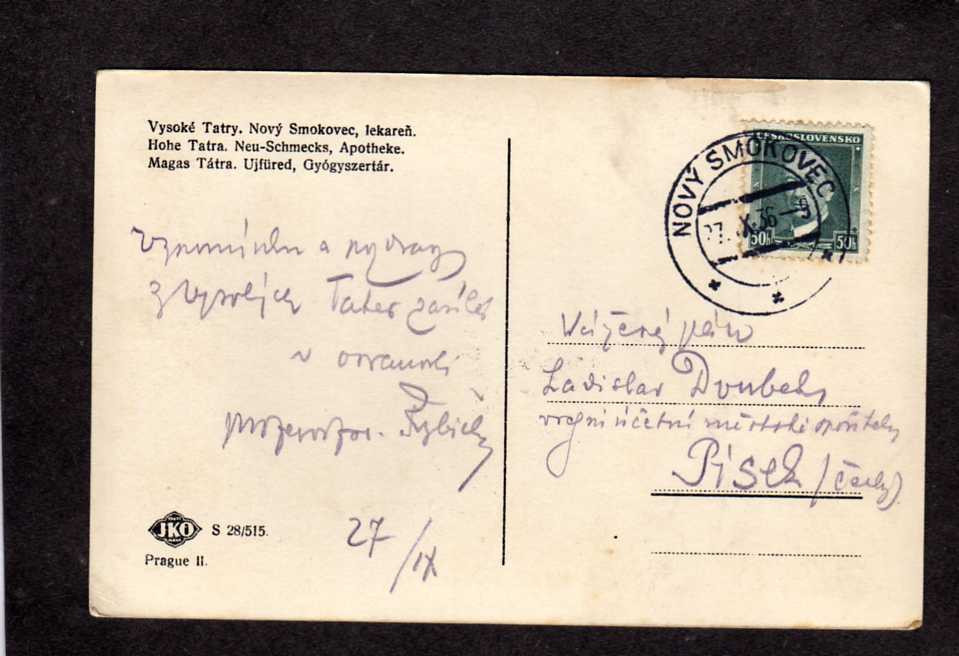 Vysoké Tatry. Nový Smokovec, lekareň.
Hohe Tatra. Neu-Schmecks, Apotheke.
Magas Tátra. Ujfüred, Gyógyszertár.
ČESKOSLOVENSKO
50h 50h
NOVÝ SMOKOVEC
27. IX. 36 — 9
Vzpomínku a pozdrav
z Vysokých Tater zasílá
v
27/IX
Vážený pán
Ladislav Doubek
vrchní účetní městské spořitelny
Písek /Čechy/
JKO S 28/515.
Prague II.